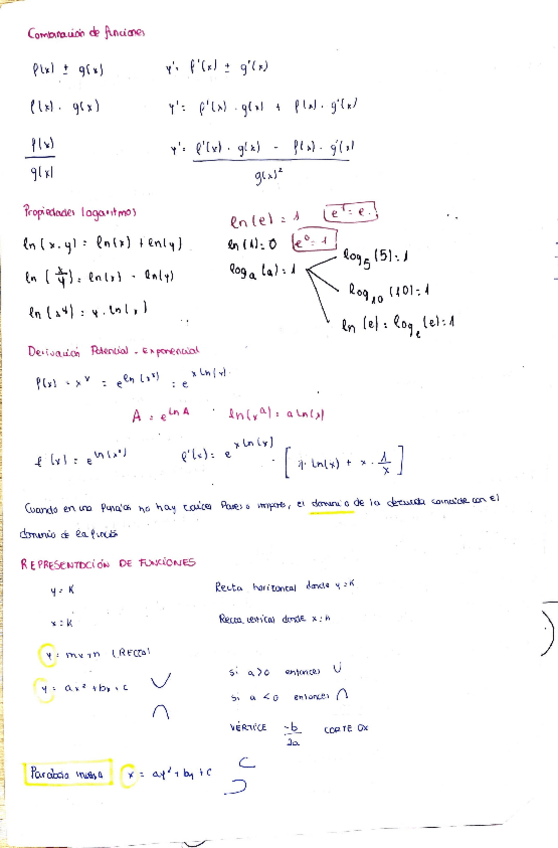 Combinación de funciones
f(x) ± g(x)    y' = f'(x) ± g'(x)
f(x) · g(x)    y' = f'(x) · g(x) + f(x) · g'(x)
f(x) / g(x)    y' = f'(x) · g(x) - f(x) · g'(x) / g(x)²
Propiedades logaritmos
ln(e) = 1    e¹ = e.
ln(x·y) = ln(x) + ln(y)    ln(1) = 0    e⁰ = 1
ln(x/y) = ln(x) - ln(y)    logₐ(a) = 1    log₅(5) = 1
log₁₀(10) = 1
ln(x^y) = y · ln(x)    ln(e) = logₑ(e) = 1
Derivación Potencial - Exponencial
f(x) = x^x = e^ln(x^x) = e^x ln(x)
A = e^ln A    ln(x^a) = a ln(x)
f(x) = e^ln(x^x)    f'(x) = e^x ln(x) · [1 · ln(x) + x · 1/x]
Cuando en una función no hay raíces pares o impares, el dominio de la derivada coincide con el
dominio de la función
REPRESENTACIÓN DE FUNCIONES
y = K    Recta horizontal donde y = K
x = K    Recta vertical donde x = K
y = mx+n (RECTA)
y = ax² + bx + c    si a>0 entonces ∪
si a<0 entonces ∩
VÉRTICE -b/2a    CORTE OX
Parábola inversa    x = ay² + by + c